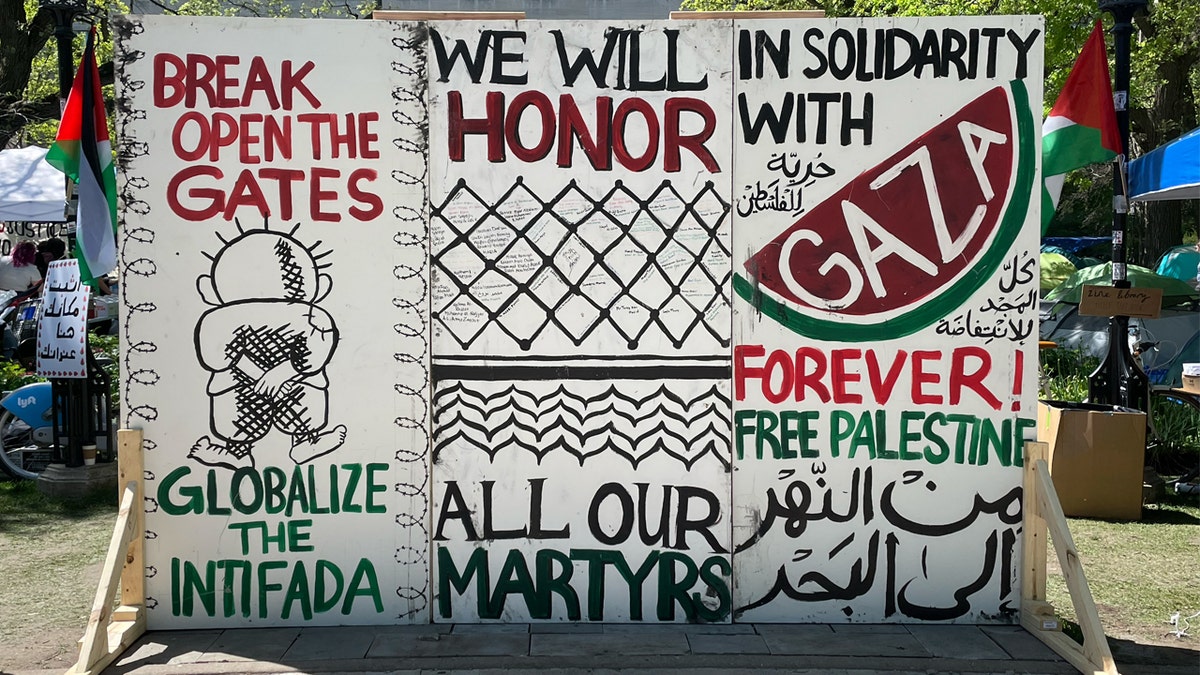 BREAK
OPEN THE
GATES
GLOBALIZE
THE
INTIFADA
WE WILL
HONOR
ALL OUR
MARTYRS
IN SOLIDARITY
WITH
حُرِيَّة
لِلْفَلَسْطِين
GAZA
كُلّ
المَجْد
لِلْاِنْتِفَاضَة
FOREVER!
FREE PALESTINE
مِنْ النَّهْر
إلى البَحْر
أثبت
مكانك
هنا
عنوانك
JUSTICE
lyft
Zine Library